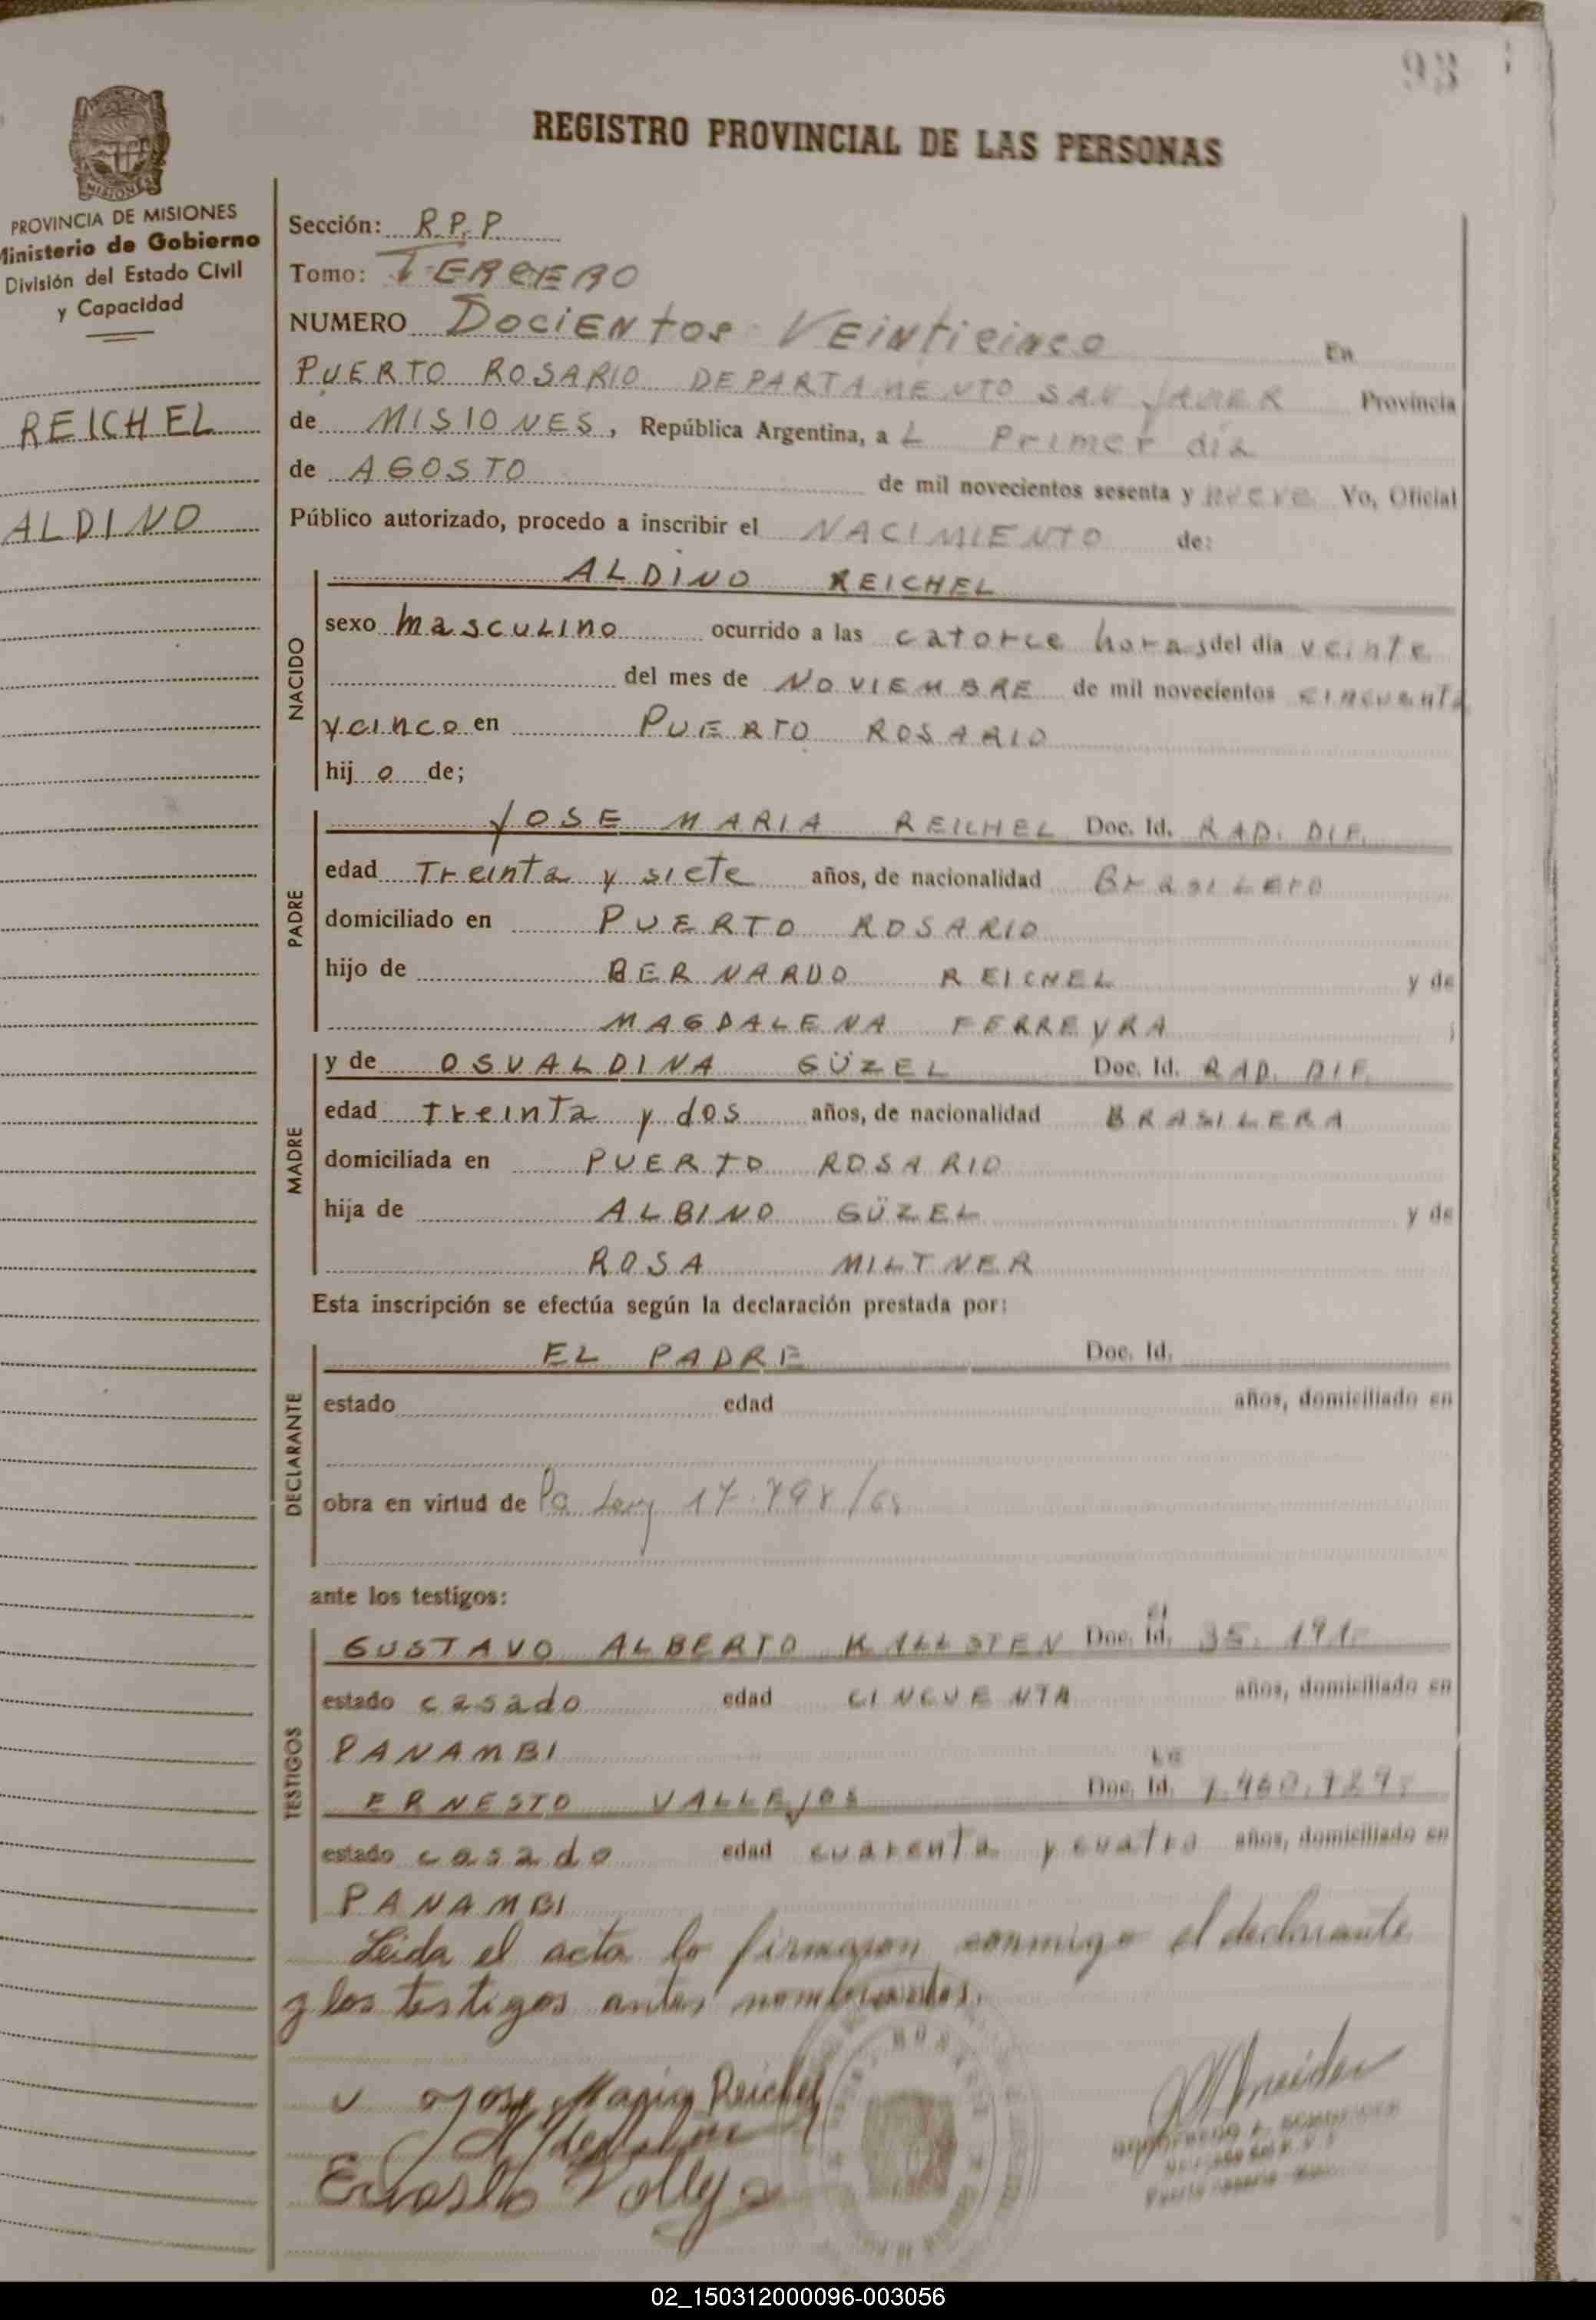 93
REGISTRO PROVINCIAL DE LAS PERSONAS
MISIONES
PROVINCIA DE MISIONES
Ministerio de Gobierno
División del Estado Civil
y Capacidad
REICHEL
ALDINO
Sección: R.P.P.
Tomo: TERCERO
NUMERO DOCIENtos VEintiCinco En
PUERTO ROSARIO DEPARTAMENTO SAN JAVIER Provincia
de MISIONES, República Argentina, a L Primer día
de AGOSTO de mil novecientos sesenta y nueve Yo, Oficial
Público autorizado, procedo a inscribir el NACIMIENTO de:
NACIDO
ALDINO REICHEL
sexo masculino ocurrido a las catorce horas del día veinte
del mes de NOVIEMBRE de mil novecientos cincuenta
y cinco en PUERTO ROSARIO
hij o de;
PADRE
JOSE MARIA REICHEL Doc. Id. RAD. DIF.
edad Treinta y siete años, de nacionalidad Brasilero
domiciliado en PUERTO ROSARIO
hijo de BERNARDO REICHEL y de
MAGDALENA FERREYRA
MADRE
y de OSVALDINA GÜZEL Doc. Id. RAD. DIF.
edad treinta y dos años, de nacionalidad BRASILERA
domiciliada en PUERTO ROSARIO
hija de ALBINO GÜZEL y de
ROSA MILTNER
Esta inscripción se efectúa según la declaración prestada por:
DECLARANTE
EL PADRE Doc. Id.
estado edad años, domiciliado en
obra en virtud de
ante los testigos:
TESTIGOS
GUSTAVO ALBERTO KALLSTEN Doc. Id. CI 35.191
estado casado edad CINCUENTA años, domiciliado en
PANAMBI
ERNESTO VALLEJOS Doc. Id. LE
estado casado edad cuarenta y cuatro años, domiciliado en
PANAMBI
Leida el acta lo firmaron conmigo el declarante
y los testigos antes nombrados.
Jose Maria Reichel
Ernesto Vallejo
02_150312000096-003056